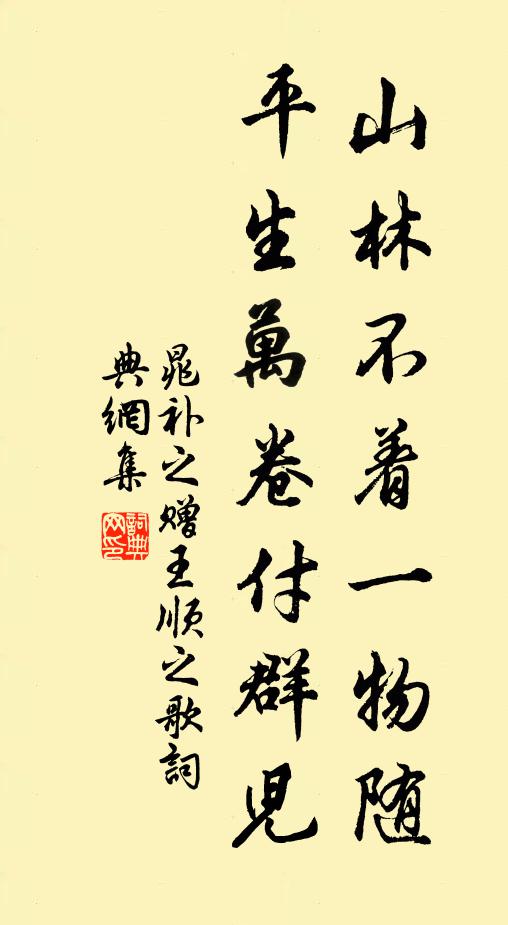 山林不着一物随
平生萬卷付群児
晁补之赠王顺之歌詞
典網集
詞典网印